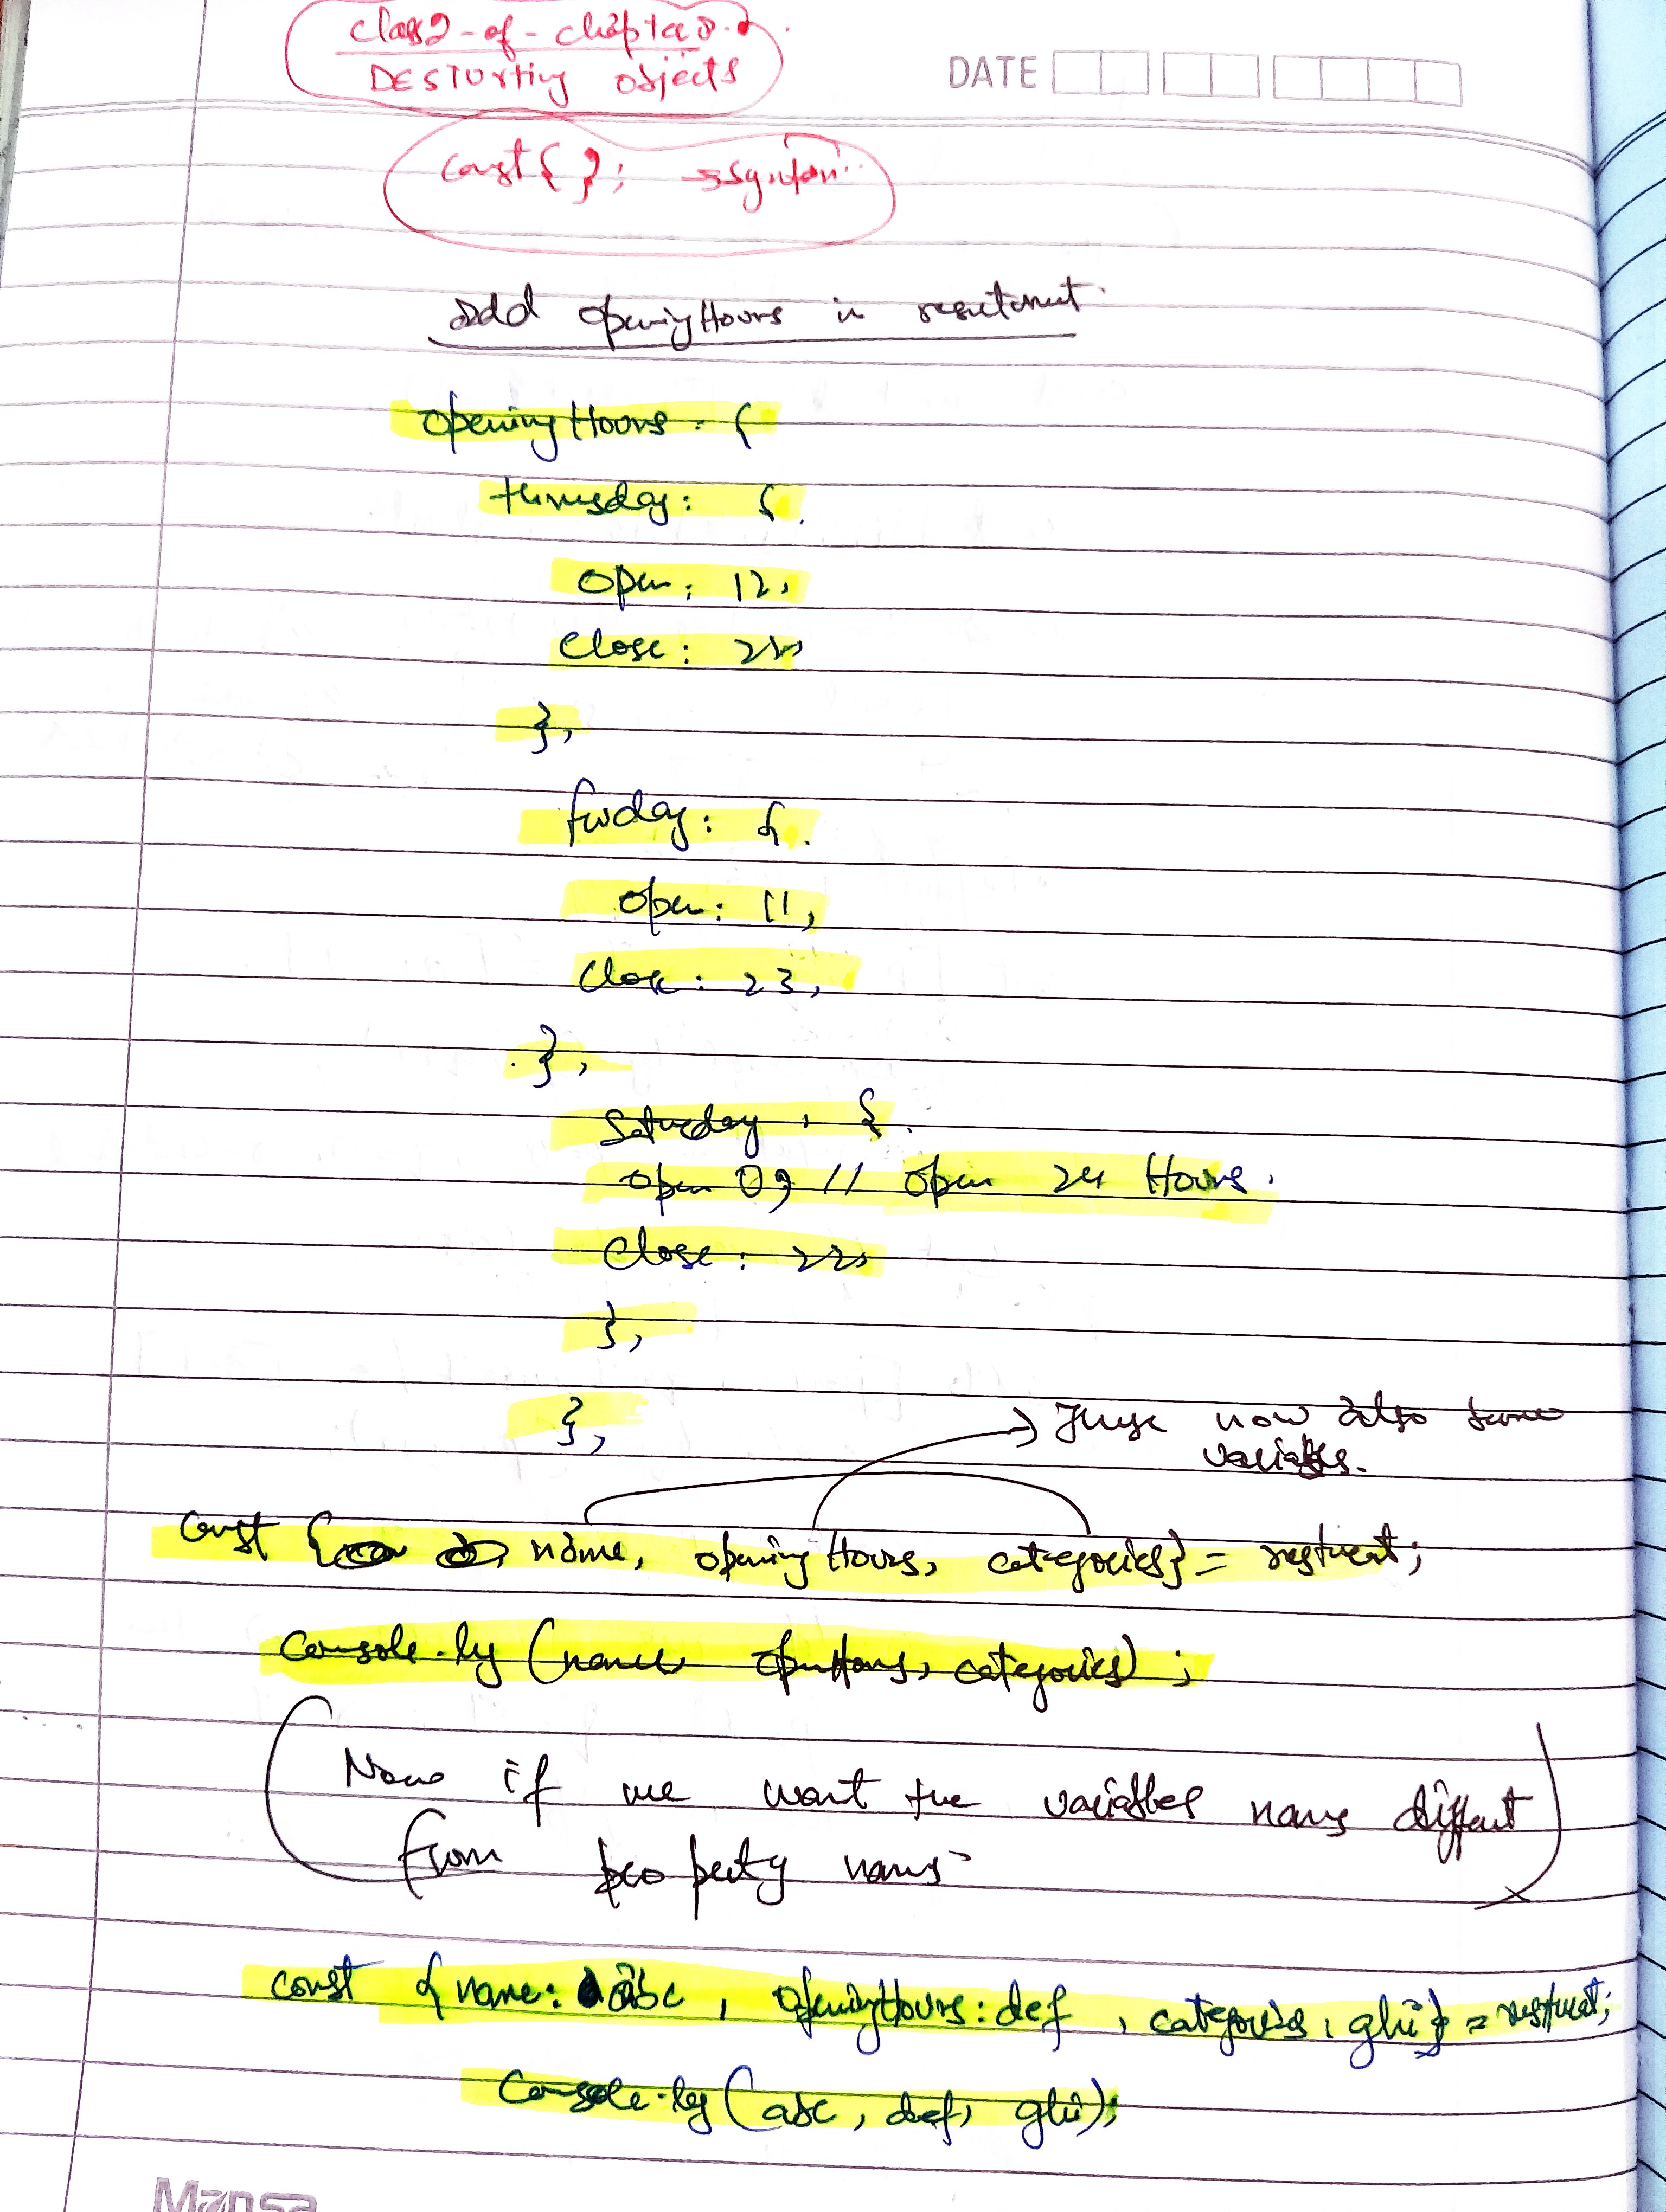 class2-of-chapter8.
DESTURting objects
DATE
const { }; →syntax..
add openingHours in resutarnut.
openingHours : {
thursday: {
open: 12,
close: 22,
},
friday: {
open: 11,
close: 23,
},
Saturday : {
open 0, // open 24 Hours.
close: 22,
},
},
→ now also some
variables.
const { name, openingHours, categories} = resturent;
console.log (name, openHours, categories) ;
Now if we want the variables names diffent
from property names
const { name: abc , openingHours: def , categories : ghi} = resturent;
console.log (abc, def, ghi);